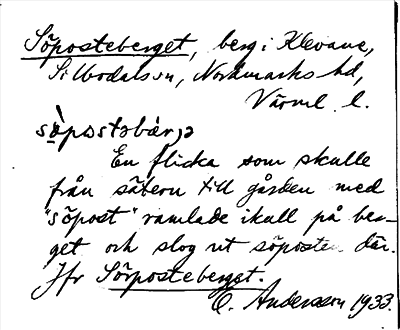 Söposteberget, berg i Klevane,
Silbodals sn, Nordmarks hd,
Värml. l.
söpostəbärjə
En flicka som skulle
från sätern till gården med
"söpost" ramlade ikull på ber-
get och slog ut söposten där.
Jfr Sörposteberget.
O. Andersson 1933.